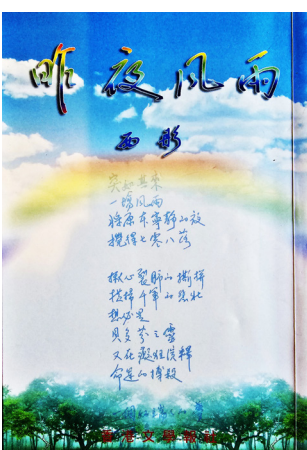 昨夜风雨
西彤
突如其来
一场风雨
将原本宁静的夜
搅得七零八落
撕心裂肺的撕拼
横扫千军的悲壮
想必是
贝多芬之灵
又在疯狂演绎
命运的搏杀
香港文學報社